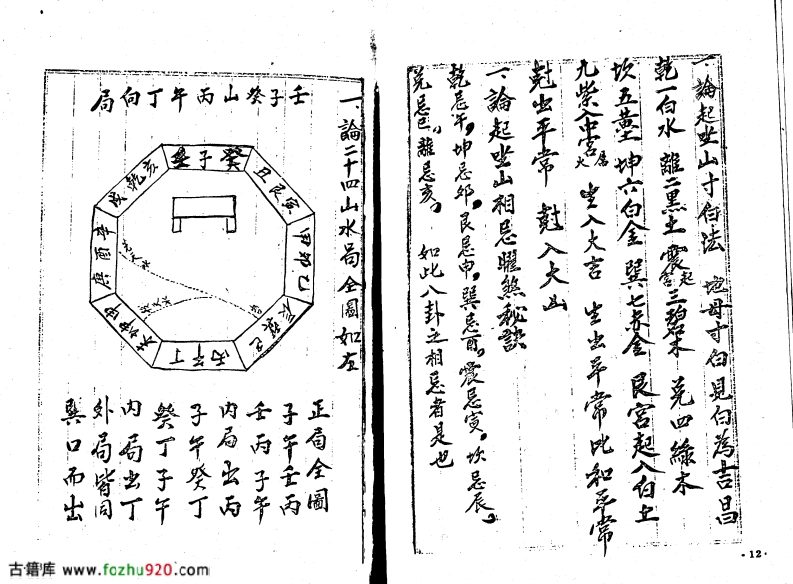 一論起坐山寸白法 地母寸白見白為吉昌
乾一白水 離二黑土 震宮起三碧木 兌四綠木
坎五黃土 坤六白金 巽七赤金 艮宮起八白土
九紫入中宮屬火 生入大吉 生出平常比和平常
尅出平常 尅入大凶
一論起坐山相忌曜煞秘訣
乾忌午，坤忌卯，艮忌申，巽忌酉，震忌寅，坎忌辰，
兌忌巳，離忌亥， 如此八卦之相忌者是也
-12-
一論二十四山水局全圖如左
壬子癸山丙午丁向局
壬子癸
丑艮寅
甲卯乙
辰巽巳
丙午丁
未坤申
庚酉辛
戌乾亥
正局全圖
子午壬丙
壬丙子午
內局出丙
子午癸丁
癸丁子午
內局出丁
外局皆同
巽口而出
古籍库 www.fozhu920.com